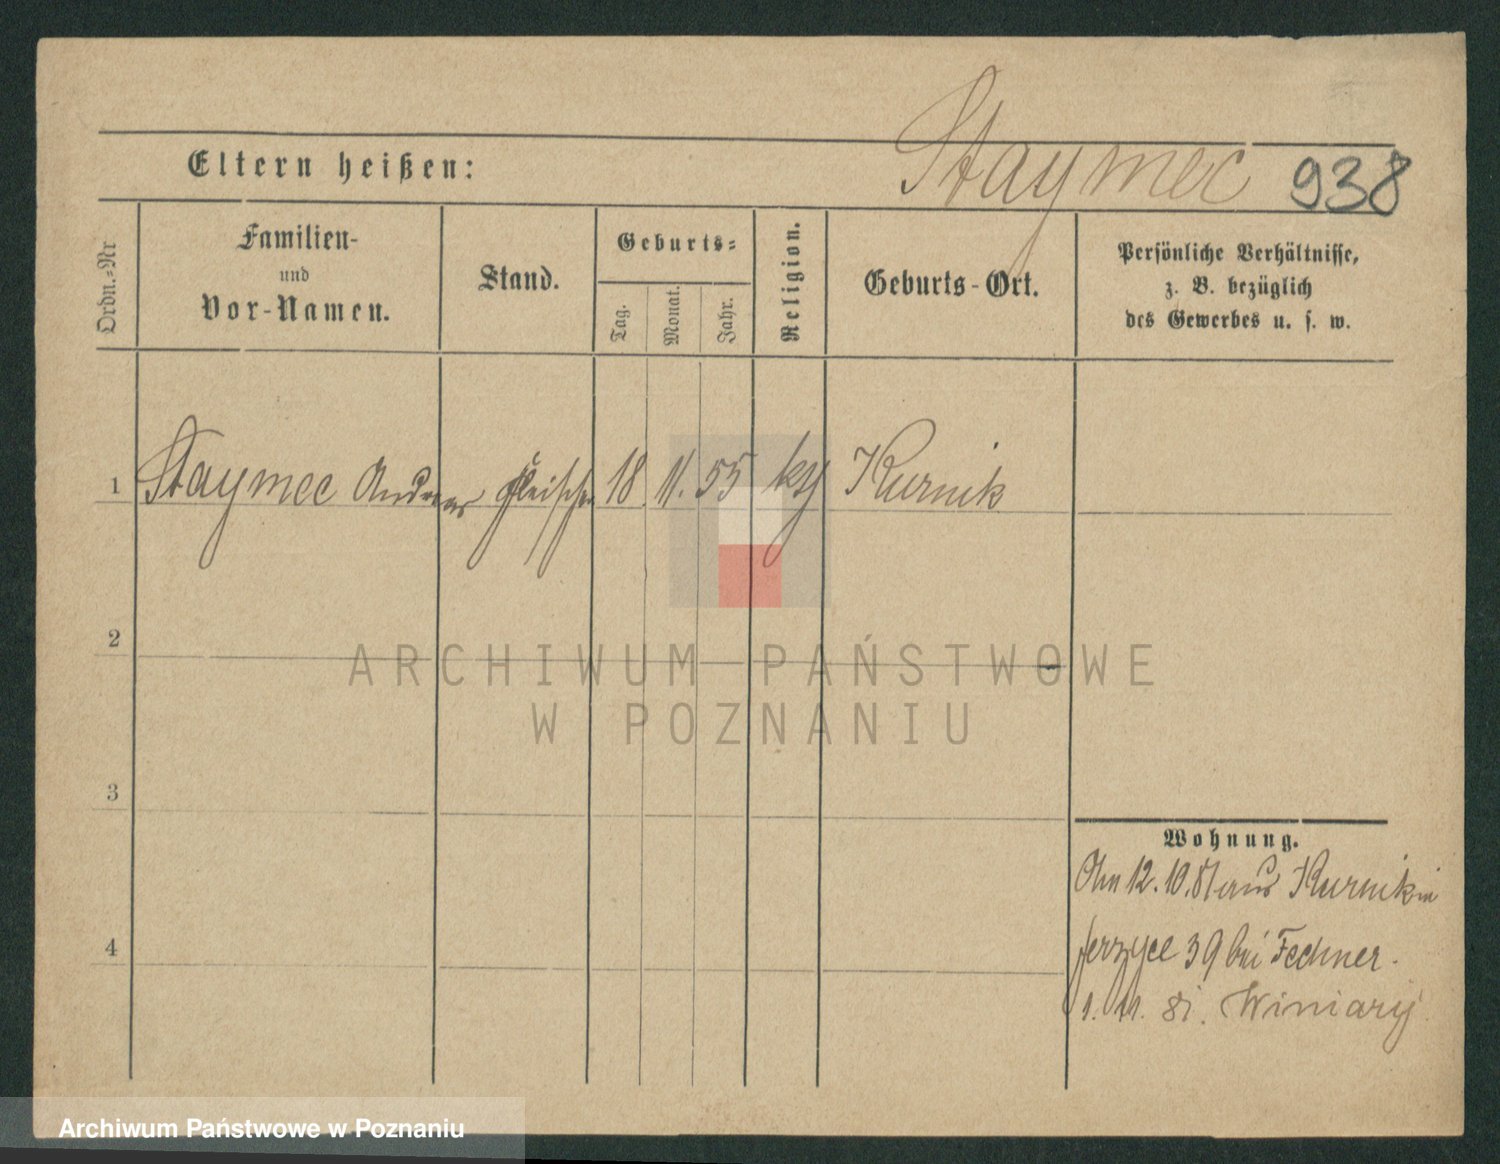 Staymec 938
Eltern heißen:
Ordn.-Nr
Familien-
und
Vor-Namen.
Stand.
Geburts-
Tag.
Monat.
Jahr.
Religion.
Geburts-Ort.
Persönliche Verhältnisse,
z. B. bezüglich
des Gewerbes u. s. w.
1 Staymec Andreas Fleischer 18. 11. 55 kty Kurnik
2
3
4
Wohnung.
Am 12.10.81 aus Kurnik in
Jerzyce 39 bei Fechner.
1. 11. 81. Winiary
ARCHIWUM PAŃSTWOWE
W POZNANIU
Archiwum Państwowe w Poznaniu